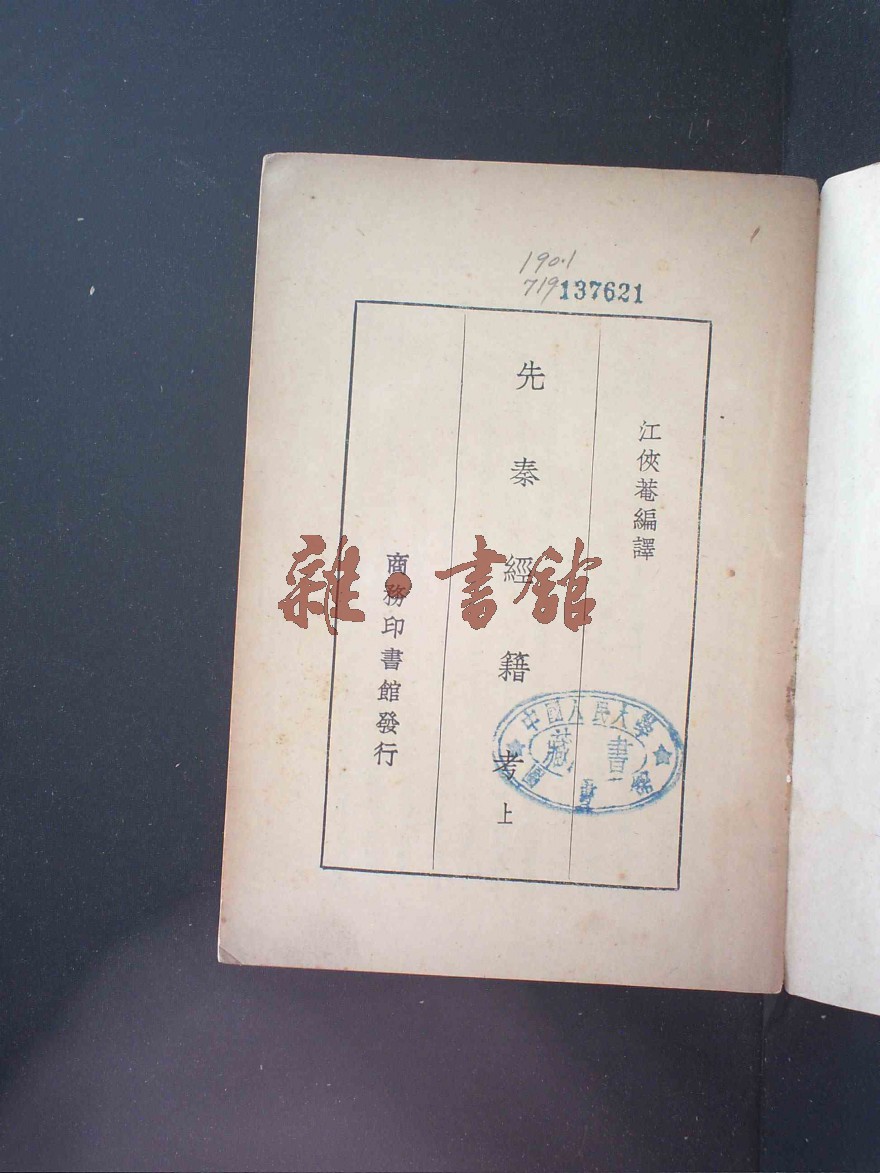 190.1
719 137621
江俠菴編譯
先秦經籍考 上
商務印書館發行
中國人民大學
藏書
圖書館
雜·書館